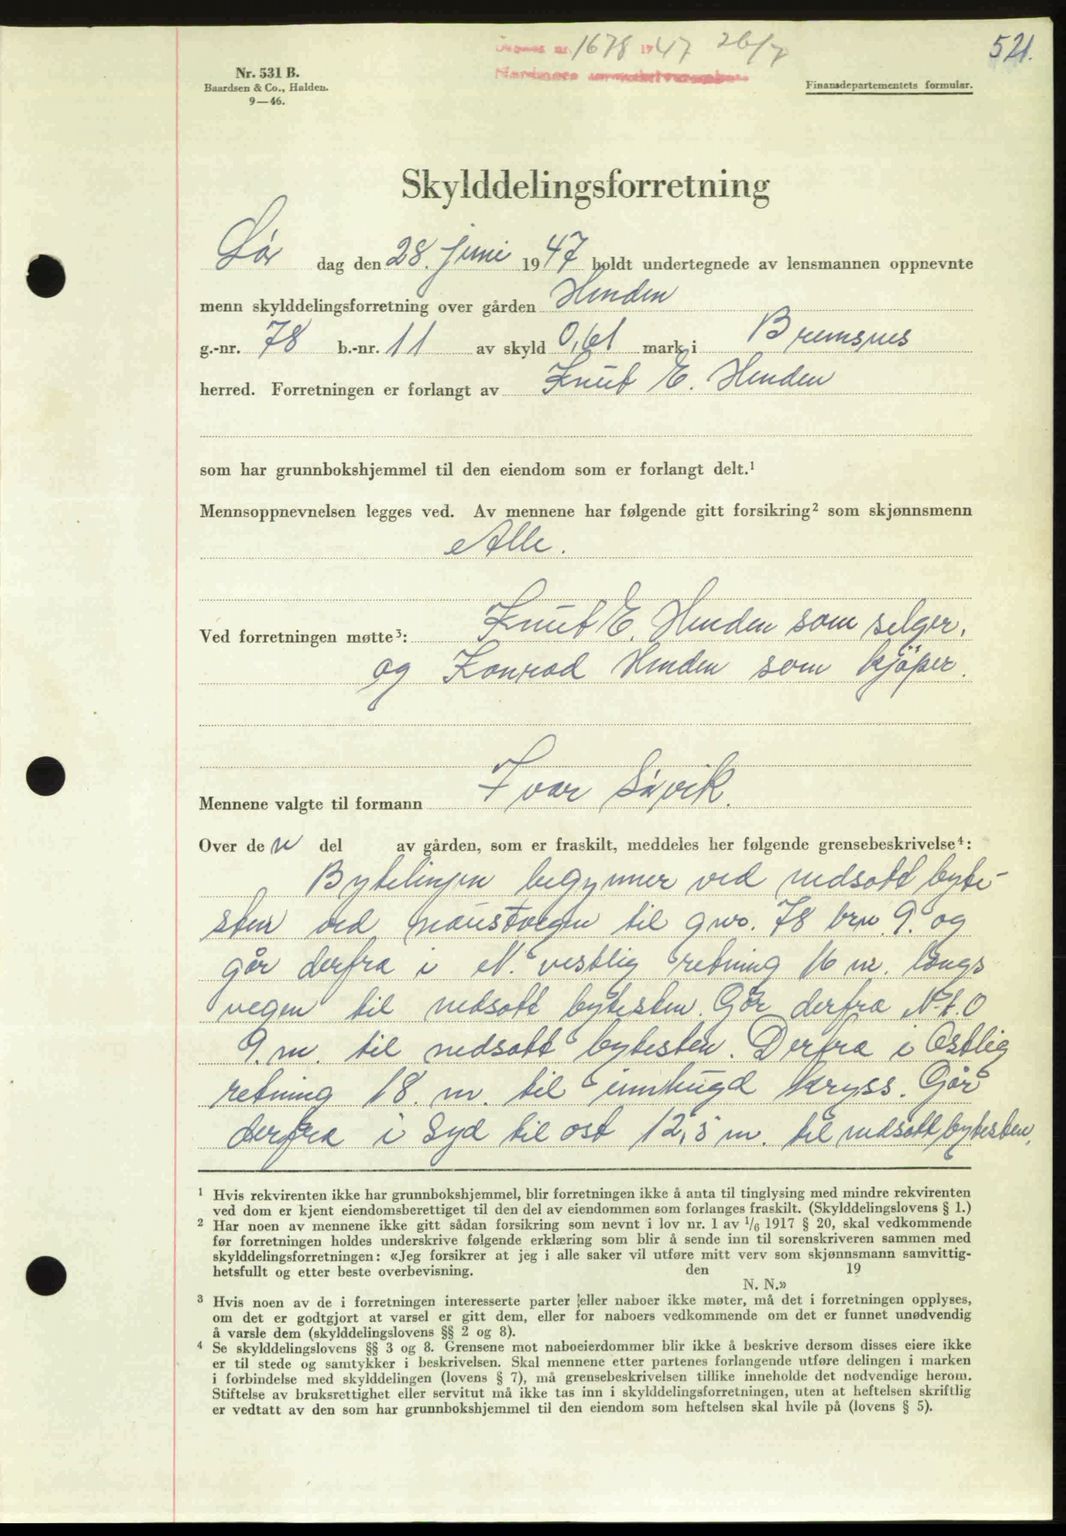 1678 1947 26/7
521.
Nr. 531 B.
Baardsen & Co., Halden.
9—46.
Finansdepartementets formular.
Skylddelingsforretning
Lør dag den 28. juni 1947 holdt undertegnede av lensmannen oppnevnte
menn skylddelingsforretning over gården Henden
g.-nr. 78 b.-nr. 11 av skyld 0,61 mark i Bremsnes
herred. Forretningen er forlangt av Knut E. Henden
som har grunnbokshjemmel til den eiendom som er forlangt delt.¹
Mennsoppnevnelsen legges ved. Av mennene har følgende gitt forsikring² som skjønnsmenn
Alle.
Ved forretningen møtte³: Knut E. Henden som selger,
og Konrad Henden som kjøper.
Mennene valgte til formann Ivar Søvik.
Over den del av gården, som er fraskilt, meddeles her følgende grensebeskrivelse⁴:
Bytelinjen begynner ved nedsatt byte-
sten ved naustvegen til gnr. 78 brn. 9. og
går derfra i N. vestlig retning 16 m. langs
vegen til nedsatt bytesten. Går derfra N.t.O
9. m. til nedsatt bytesten. Derfra i Østlig
retning 18. m. til innhugd kryss. Går
derfra i Syd til ost 12,5 m. til nedsatt bytesten,
¹ Hvis rekvirenten ikke har grunnbokshjemmel, blir forretningen ikke å anta til tinglysing med mindre rekvirenten
ved dom er kjent eiendomsberettiget til den del av eiendommen som forlanges fraskilt. (Skylddelingslovens § 1.)
² Har noen av mennene ikke gitt sådan forsikring som nevnt i lov nr. 1 av 1/6 1917 § 20, skal vedkommende
før forretningen holdes underskrive følgende erklæring som blir å sende inn til sorenskriveren sammen med
skylddelingsforretningen: «Jeg forsikrer at jeg i alle saker vil utføre mitt verv som skjønnsmann samvittig-
hetsfullt og etter beste overbevisning. den 19
N. N.»
³ Hvis noen av de i forretningen interesserte parter eller naboer ikke møter, må det i forretningen opplyses,
om det er godtgjort at varsel er gitt dem, eller for naboers vedkommende om det er funnet unødvendig
å varsle dem (skylddelingslovens §§ 2 og 8).
⁴ Se skylddelingslovens §§ 3 og 8. Grensene mot naboeierdommer blir ikke å beskrive dersom disses eiere ikke
er til stede og samtykker i beskrivelsen. Skal mennene etter partenes forlangende utføre delingen i marken
i forbindelse med skylddelingen (lovens § 7), må grensebeskrivelsen tillike inneholde det nødvendige herom.
Stiftelse av bruksrettighet eller servitut må ikke tas inn i skylddelingsforretningen, uten at heftelsen skriftlig
er vedtatt av den som har grunnbokshjemmel til den eiendom som heftelsen skal hvile på (lovens § 5).